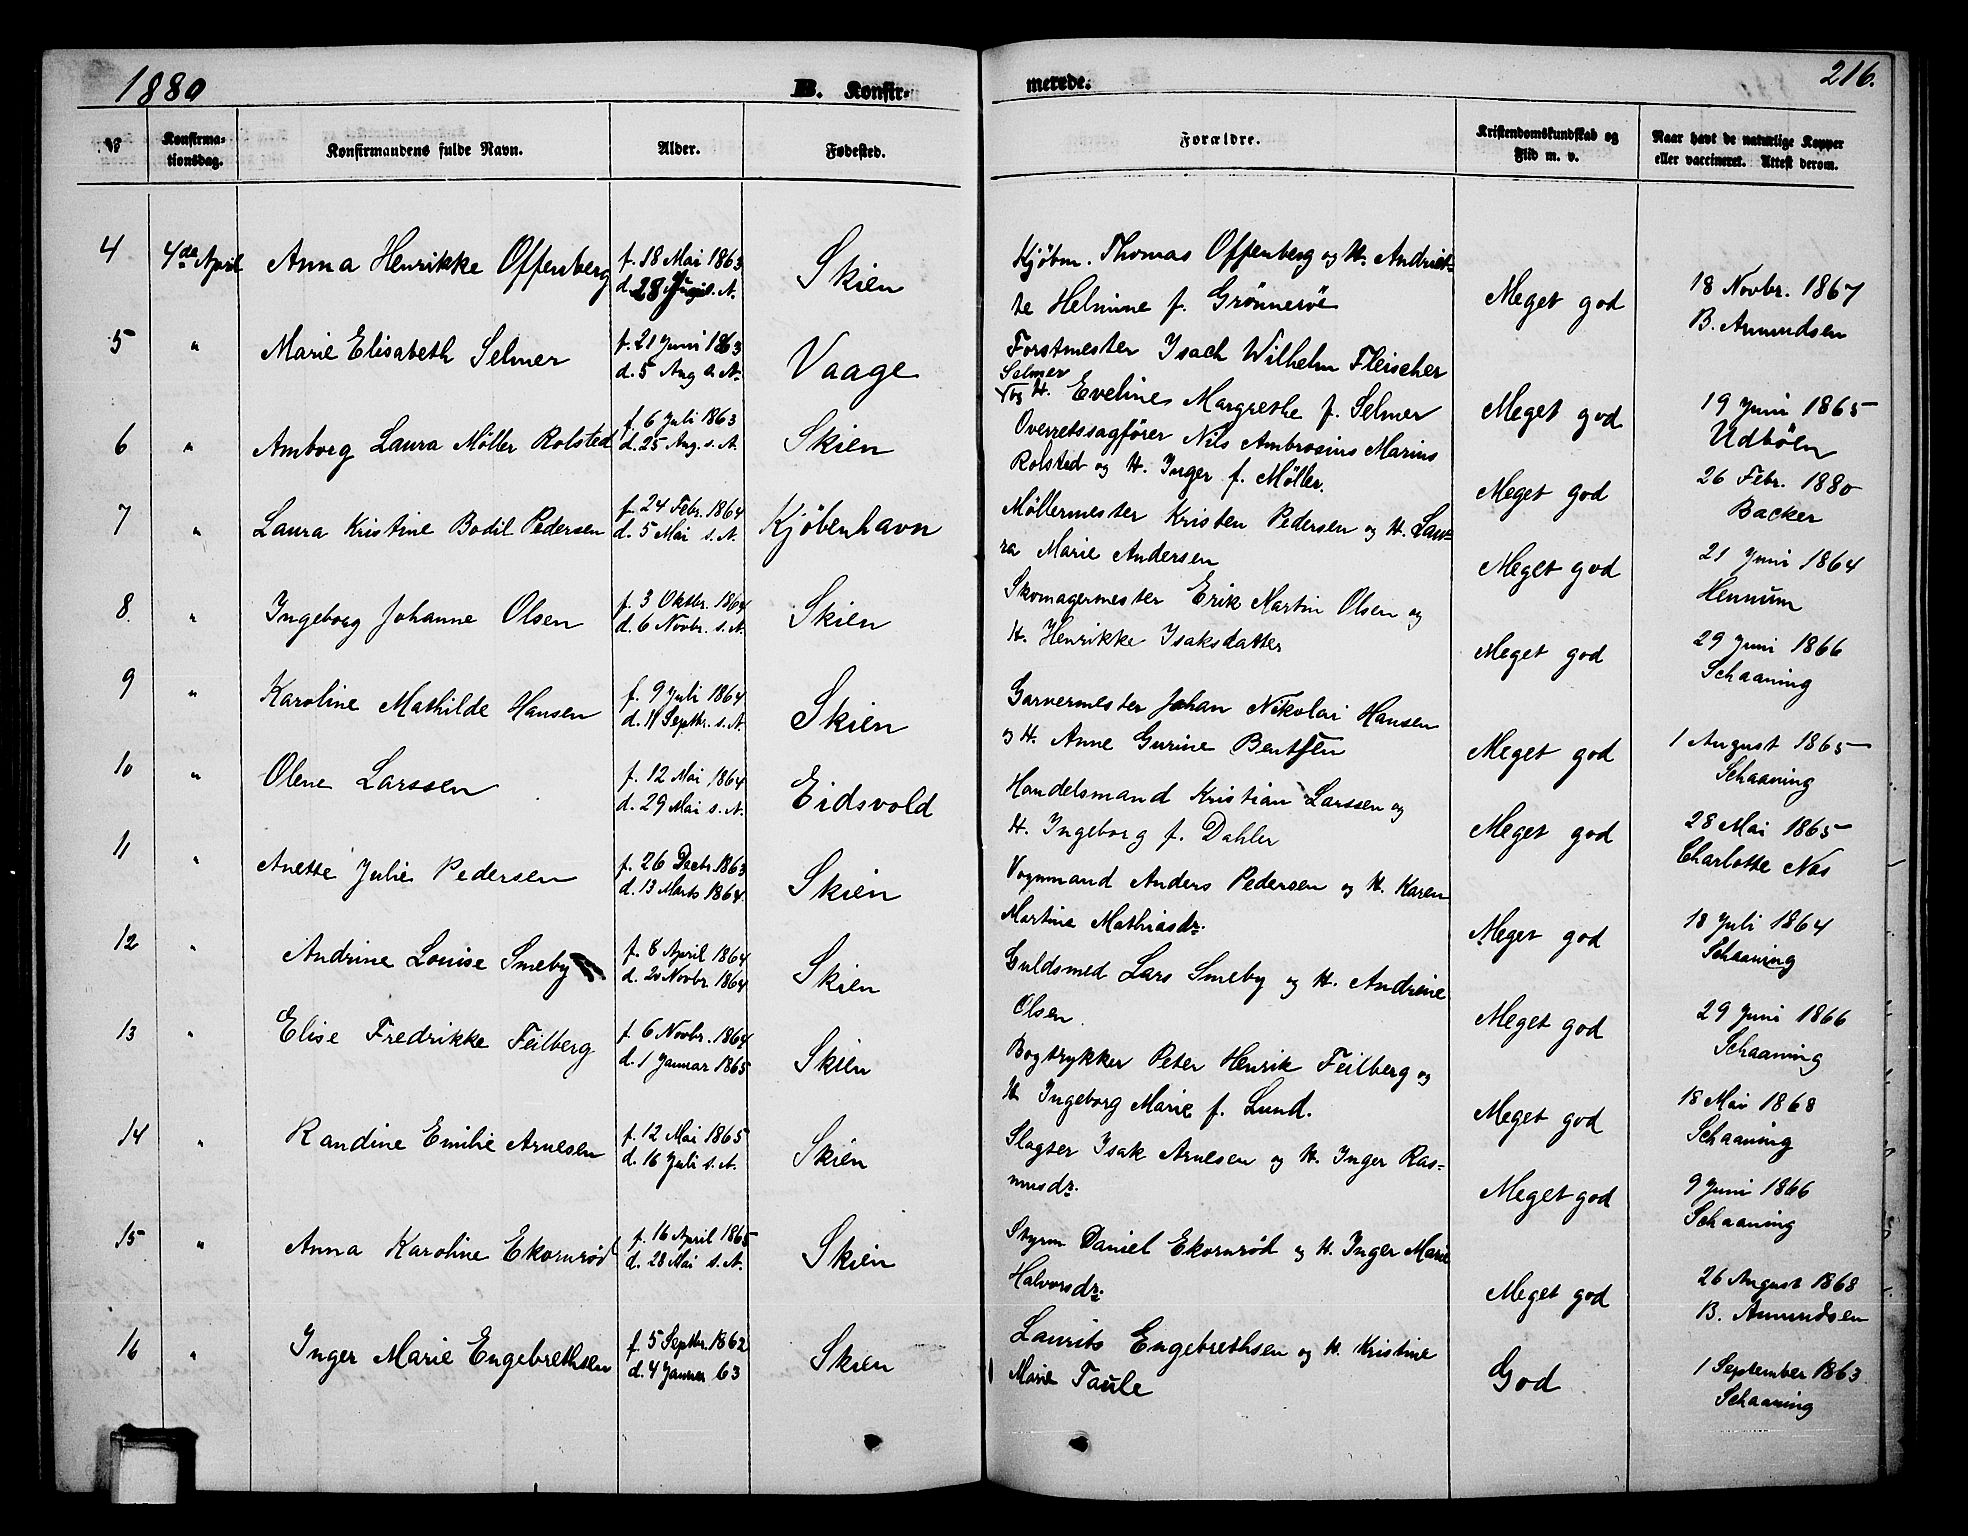 1880
B. Konfir-
merede.
216.
№
Konfirma-
tionsdag.
Konfirmandens fulde Navn.
Alder.
Fødested.
Forældre.
Kristendomskundskab og
Flid m. v.
Naar havt de naturlige Kopper
eller vaccineret. Attest derom.
4 4de April Anna Henrikke Offenberg
f. 18 Mai 1863
d. 28 s. A.
Skien
Kjöbm. Thomas Offenberg og H. Andriet-
te Helmine f. Grönneröe
Meget god
18 Novbr. 1867
B. Amundsen
5 " Marie Elisabeth Selmer
f. 21 Juni 1863
d. 5 Aug s. A.
Vaage
Forstmester Isach Wilhelm Fleischer
Selmer
og H. Eveline Margrethe f. Selmer
Meget god
19 Juni 1865
Udbölen
6 " Amborg Laura Möller Rolsted
f. 6 Juli 1863
d. 25 Aug. s. A.
Skien
Overretssagförer Nils Ambrosius Marius
Rolsted og H. Inger f. Möller.
Meget god
26 Febr. 1880
Backer
7 " Laura Kristine Bodil Pedersen
f. 24 Febr. 1864
d. 5 Mai s. A.
Kjöbenhavn
Möllermester Kristen Pedersen og H. Lau-
ra Marie Andersen
Meget god
21 Juni 1864
Hennum
8. " Ingeborg Johanne Olsen
f. 3 Oktbr. 1864
d. 6 Novbr. s. A.
Skien
Skomagermester Erik Martin Olsen og
H. Henrikke Isaksdatter
Meget god
29 Juni 1866
Schaaning
9 " Karoline Mathilde Hansen
f. 9 Juli 1864
d. 11 Septbr. s. A.
Skien
Garvermester Johan Nikolai Hansen
og H. Anne Gurine Bentsen
Meget god
1 August 1865
Schaaning
10 " Olene Larssen
f. 12 Mai 1864
d. 29 Mai s. A.
Eidsvold
Handelsmand Kristian Larssen og
H. Ingeborg f. Dahler
Meget god
28 Mai 1865
Charlotte Næs
11 " Anette Julie Pedersen
f. 26 Decbr. 1863
d. 13 Marts 1864.
Skien
Vognmand Anders Pedersen og H. Karen
Martine Mathiasdr.
Meget god
18 Juli 1864
Schaaning
12 " Andrine Louise Smeby
f. 8 April 1864
d. 20 Novbr. 1864
Skien
Guldsmed Lars Smeby og H. Andrine
Olsen.
Meget god
29 Juni 1866
Schaaning
13 " Elise Fredrikke Feilberg
f. 6 Novbr. 1864
d. 1 Januar 1865
Skien
Bogtrykker Peter Henrik Feilberg og
H Ingeborg Marie f. Lund.
Meget god
18 Mai 1868
Schaaning
14 " Randine Emilie Arnesen
f. 12 Mai 1865
d. 16 Juli s. A.
Skien
Slagter Isak Arnesen og H. Inger Ras-
musdr.
Meget god
9 Juni 1866
Schaaning
15 " Anna Karoline Ekornröd
f. 16 April 1865
d. 28 Mai s. A.
Skien
Styrm Daniel Ekornröd og H. Inger Marie
Halvorsdr.
Meget god
26 August 1868
B. Amundsen
16 " Inger Marie Engebrethsen
f. 5 Septbr. 1862
d. 4 Januar 63
Skien
Laurits Engebrethsen og H. Kristine
Marie Taule
God
1 September 1863
Schaaning